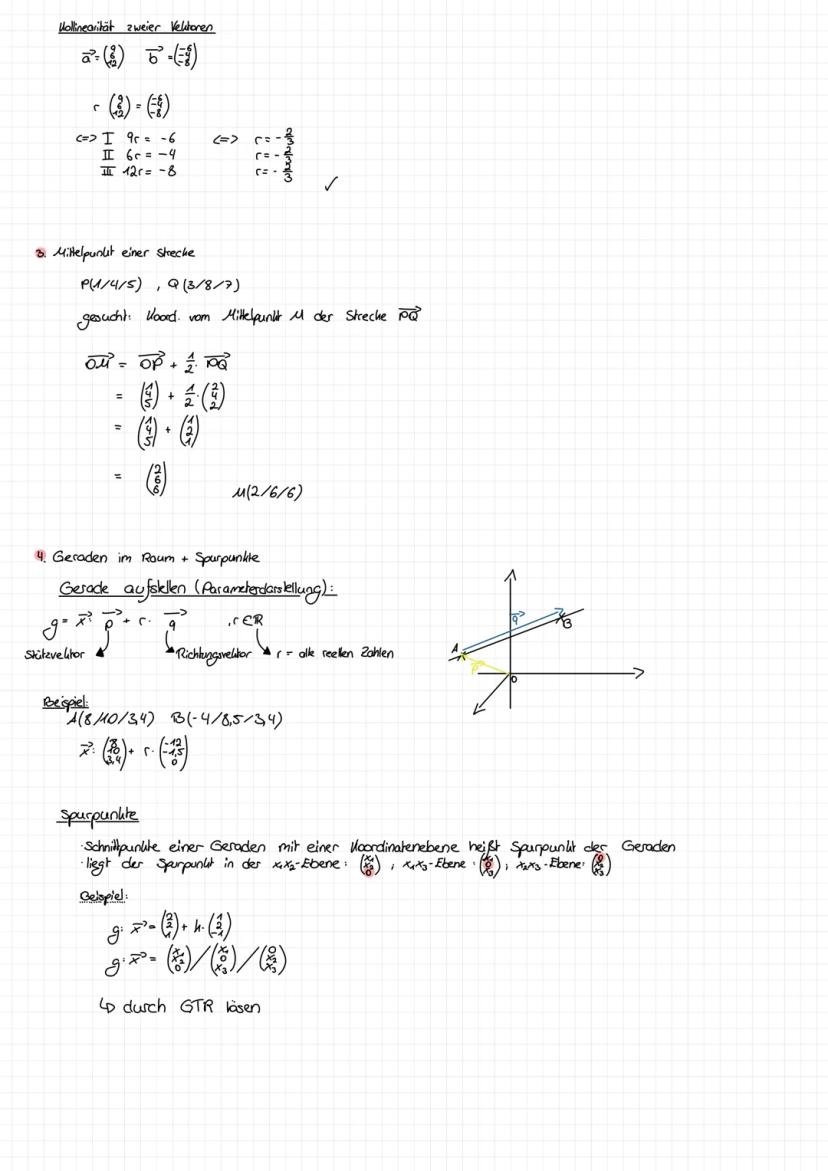 Kollinearität zweier Vektoren
a⃗ = (9 6 12) b⃗ = (-6 -4 -8)
r (9 6 12) = (-6 -4 -8)
<=> I 9r = -6 <=> r = -2/3
II 6r = -4 r = -2/3
III 12r = -8 r = -2/3 ✓
3. Mittelpunkt einer Strecke
P(1/4/5) , Q(3/8/7)
gesucht: Koord. vom Mittelpunkt M der Strecke PQ⃗
OM⃗ = OP⃗ + 1/2 · PQ⃗
= (1 4 5) + 1/2 · (2 4 2)
= (1 4 5) + (1 2 1)
= (2 6 6) M(2/6/6)
4. Geraden im Raum + Spurpunkte
Gerade aufstellen (Parameterdarstellung):
g = x⃗: p⃗ + r · q⃗ , r ∈ R
Stützvektor Richtungsvektor r = alle reellen Zahlen
A q⃗ B
p⃗ O
Beispiel:
A(8/10/3,4) B(-4/8,5/3,4)
x⃗: (8 10 3,4) + r · (-12 -1,5 0)
Spurpunkte
· Schnittpunkte einer Geraden mit einer Koordinatenebene heißt Spurpunkt der Geraden
· liegt der Spurpunkt in der x₁x₂-Ebene: (x₁ x₂ 0) ; x₁x₃-Ebene: (x₁ 0 x₃) ; x₂x₃-Ebene: (0 x₂ x₃)
Beispiel:
g: x⃗ = (2 2 1) + k · (1 2 -1)
g: x⃗ = (x₁ x₂ 0) / (x₁ 0 x₃) / (0 x₂ x₃)
↳ durch GTR lösen